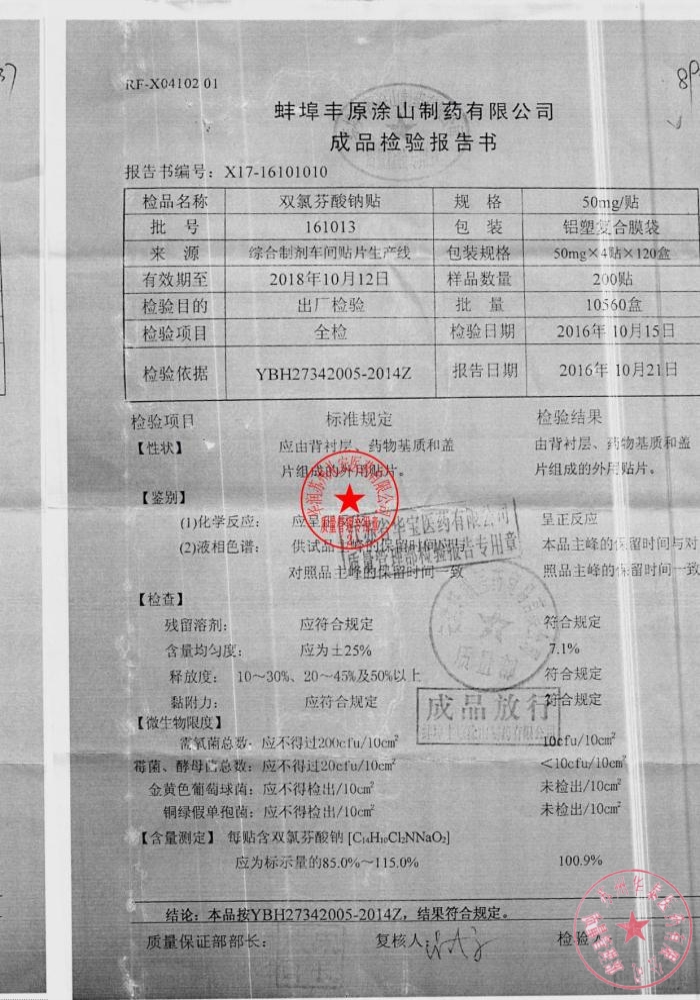 RF-X04102 01
蚌埠丰原涂山制药有限公司
成品检验报告书
报告书编号：X17-16101010
检品名称 双氯芬酸钠贴 规 格 50mg/贴
批 号 161013 包 装 铝塑复合膜袋
来 源 综合制剂车间贴片生产线 包装规格 50mg×4贴×120盒
有效期至 2018年10月12日 样品数量 200贴
检验目的 出厂检验 批 量 10560盒
检验项目 全检 检验日期 2016年 10月15日
检验依据 YBH27342005-2014Z 报告日期 2016年 10月21日
检验项目 标准规定 检验结果
【性状】 应由背衬层、药物基质和盖 由背衬层、药物基质和盖
片组成的外用贴片。 片组成的外用贴片。
【鉴别】
(1)化学反应： 应呈 呈正反应
(2)液相色谱： 供试品主峰的保留时间 本品主峰的保留时间与对
对照品主峰的保留时间一致 照品主峰的保留时间一致
华宝医药有限公司
质量管理部检验报告专用章
【检查】
残留溶剂： 应符合规定 符合规定
含量均匀度： 应为±25% 7.1%
释放度： 10～30%、20～45%及50%以上 符合规定
黏附力： 应符合规定 符合规定
质量部
成品放行
【微生物限度】
需氧菌总数：应不得过200cfu/10cm² 10cfu/10cm²
霉菌、酵母菌总数：应不得过20cfu/10cm² <10cfu/10cm²
金黄色葡萄球菌：应不得检出/10cm² 未检出/10cm²
铜绿假单孢菌：应不得检出/10cm² 未检出/10cm²
【含量测定】 每贴含双氯芬酸钠 [C₁₄H₁₀Cl₂NNaO₂]
应为标示量的85.0%～115.0% 100.9%
结论：本品按YBH27342005-2014Z，结果符合规定。
质量保证部部长： 复核人： 检验人